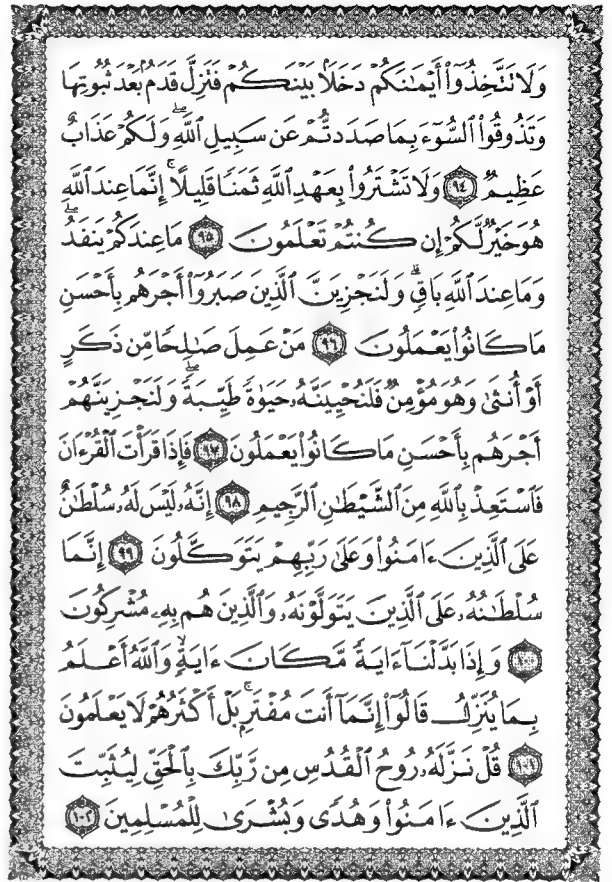 وَلَا تَتَّخِذُوٓا۟ أَيْمَـٰنَكُمْ دَخَلًۢا بَيْنَكُمْ فَتَزِلَّ قَدَمٌۢ بَعْدَ ثُبُوتِهَا
وَتَذُوقُوا۟ ٱلسُّوٓءَ بِمَا صَدَدتُّمْ عَن سَبِيلِ ٱللَّهِ ۖ وَلَكُمْ عَذَابٌ
عَظِيمٌ ﴿٩٤﴾ وَلَا تَشْتَرُوا۟ بِعَهْدِ ٱللَّهِ ثَمَنًا قَلِيلًا ۚ إِنَّمَا عِندَ ٱللَّهِ
هُوَ خَيْرٌ لَّكُمْ إِن كُنتُمْ تَعْلَمُونَ ﴿٩٥﴾ مَا عِندَكُمْ يَنفَدُ ۖ
وَمَا عِندَ ٱللَّهِ بَاقٍ ۗ وَلَنَجْزِيَنَّ ٱلَّذِينَ صَبَرُوٓا۟ أَجْرَهُم بِأَحْسَنِ
مَا كَانُوا۟ يَعْمَلُونَ ﴿٩٦﴾ مَنْ عَمِلَ صَـٰلِحًا مِّن ذَكَرٍ
أَوْ أُنثَىٰ وَهُوَ مُؤْمِنٌ فَلَنُحْيِيَنَّهُۥ حَيَوٰةً طَيِّبَةً ۖ وَلَنَجْزِيَنَّهُمْ
أَجْرَهُم بِأَحْسَنِ مَا كَانُوا۟ يَعْمَلُونَ ﴿٩٧﴾ فَإِذَا قَرَأْتَ ٱلْقُرْءَانَ
فَٱسْتَعِذْ بِٱللَّهِ مِنَ ٱلشَّيْطَـٰنِ ٱلرَّجِيمِ ﴿٩٨﴾ إِنَّهُۥ لَيْسَ لَهُۥ سُلْطَـٰنٌ
عَلَى ٱلَّذِينَ ءَامَنُوا۟ وَعَلَىٰ رَبِّهِمْ يَتَوَكَّلُونَ ﴿٩٩﴾ إِنَّمَا
سُلْطَـٰنُهُۥ عَلَى ٱلَّذِينَ يَتَوَلَّوْنَهُۥ وَٱلَّذِينَ هُم بِهِۦ مُشْرِكُونَ
﴿١٠٠﴾ وَإِذَا بَدَّلْنَآ ءَايَةً مَّكَانَ ءَايَةٍ ۙ وَٱللَّهُ أَعْلَمُ
بِمَا يُنَزِّلُ قَالُوٓا۟ إِنَّمَآ أَنتَ مُفْتَرٍۭ ۚ بَلْ أَكْثَرُهُمْ لَا يَعْلَمُونَ
﴿١٠١﴾ قُلْ نَزَّلَهُۥ رُوحُ ٱلْقُدُسِ مِن رَّبِّكَ بِٱلْحَقِّ لِيُثَبِّتَ
ٱلَّذِينَ ءَامَنُوا۟ وَهُدًى وَبُشْرَىٰ لِلْمُسْلِمِينَ ﴿١٠٢﴾